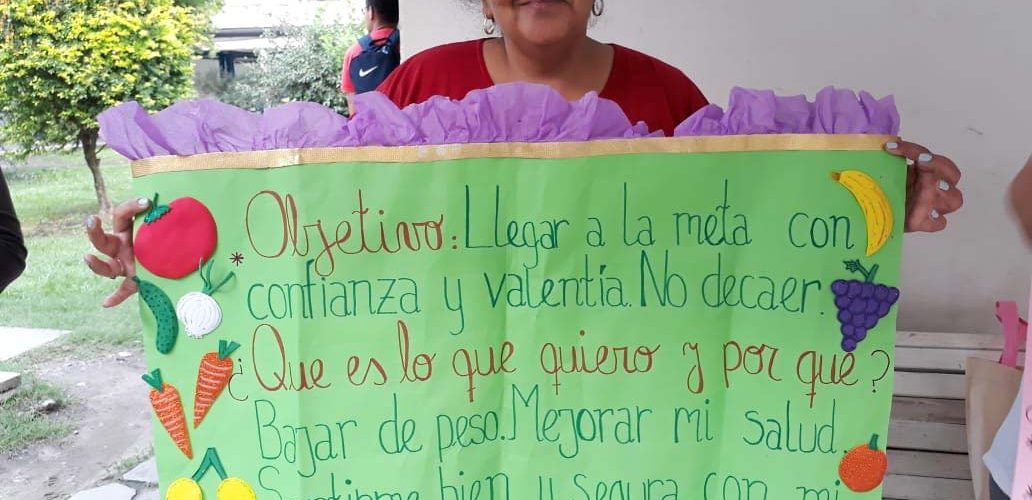 * Objetivo: Llegar a la meta con
confianza y valentía. No decaer.
¿Que es lo que quiero y por que?
Bajar de peso. Mejorar mi salud.
Sentirme bien y segura con mi